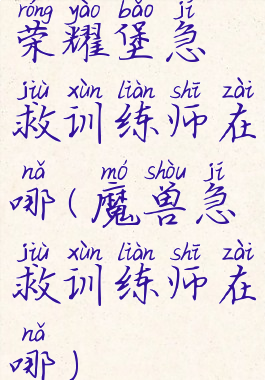 róng yào bǎo jí
荣耀堡急
jiù xùn liàn shī zài
救训练师在
nǎ mó shòu jí
哪(魔兽急
jiù xùn liàn shī zài
救训练师在
nǎ
哪)